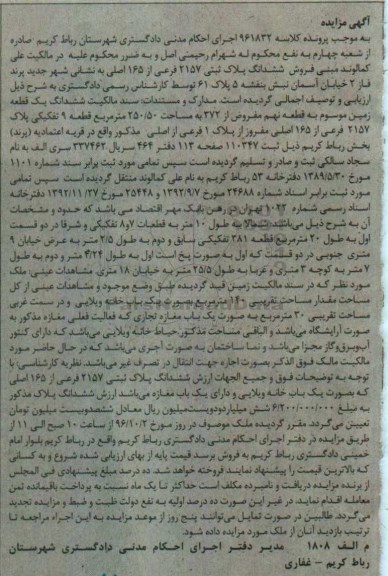 آگهی مزایده
به موجب پرونده کلاسه ۹۶۱۸۳۲ اجرای احکام مدنی دادگستری شهرستان رباط کریم صادره
از شعبه چهارم به نفع محکوم له شهرام رحیمی اصل و به ضرر محکوم علیه در مالکیت علی
کمالوند مبنی فروش ششدانگ پلاک ثبتی ۲۱۵۷ فرعی از ۱۶۵ اصلی به نشانی شهر جدید پرند
فاز ۲ خیابان آسمان نبش بنفشه ۵ پلاک ۶۱ توسط کارشناس رسمی دادگستری به شرح ذیل
ارزیابی و توصیف اجمالی گردیده است: مدارک و مستندات: سند مالکیت ششدانگ یک قطعه
زمین موسوم به قطعه نهم مفروض از ۳۷۲ به مساحت ۲۵۰/۵۰ مترمربع قطعه ۹ تفکیکی پلاک
۲۱۵۷ فرعی از ۱۶۵ اصلی مفروز از پلاک ۱ فرعی از اصلی مذکور واقع در قریه اعتمادیه (پرند)
بخش رباط کریم ذیل ثبت ۱۱۰۳۴۷ صفحه ۱۱۳ دفتر ۴۶۴ سریال ۳۳۷۴۶۲ سری الف به نام
سجاد سالکی ثبت و صادر و تسلیم گردیده است سپس تمامی مورد ثبت برابر سند شماره ۱۱۰۱
مورخ ۱۳۸۹/۵/۳۰ دفترخانه ۵۳ رباط کریم به نام علی کمالوند منتقل گردیده است سپس تمامی
مورد ثبت برابر اسناد شماره ۲۴۶۸۸ مورخ ۱۳۹۲/۹/۷ و ۲۵۴۴۸ مورخ ۱۳۹۲/۱۱/۲۷ دفترخانه
اسناد رسمی شماره ۱۰۲۳ تهران در رهن بانک مهر اقتصاد می باشد که حدود و مشخصات
آن به شرح ذیل می‌باشد: شمالا به طول ۱۰ متر به قطعات ۷و۸ تفکیکی و شرقا در دو قسمت
اول به طول ۳۰ مترمربع قطعه ۳۸۱ تفکیکی سابق و دوم به طول ۲/۵ متر به عرض خیابان ۹
متری جنوبی در دو قسمت که اول به صورت پخ است اول به طول ۴/۲۴ متر و دوم به طول
۷ متر به کوچه ۳ متری و غربا به طول ۲۵/۵ متر به خیابان ۱۸ متری. مشاهدات عینی: ملک
مورد نظر که در سند مالکیت زمین قید گردیده طبق وضع موجود و مشاهدات عینی از کل
مساحت مقدار مساحت تقریبی ۱۲۰ مترمربع بصورت یک باب خانه ویلایی و در سمت غربی
مساحت تقریبی ۳۰ مترمربع به صورت یک باب مغازه تجاری که فعالیت فعلی مغازه مذکور به
صورت آرایشگاه می‌باشد و الباقی مساحت مذکور حیاط خانه ویلایی می‌باشد که دارای کنتور
آب‌وبرق‌وگاز مجزا می‌باشد و نما ساختمان به صورت آجری می‌باشد که در حال حاضر مورد
مالکیت مالک فوق الذکر بصورت اجاره جهت انتقال در تصرف غیر می‌باشد. نظریه کارشناسی: با
توجه به توضیحات فوق و جمیع الجهات ارزش ششدانگ پلاک ثبتی ۲۱۵۷ فرعی از ۱۶۵ اصلی
که بصورت یک باب خانه ویلایی و دارای یک باب مغازه می‌باشد ارزش ششدانگ پلاک مذکور
به مبلغ ۶/۲۰۰/۰۰۰/۰۰۰ شش میلیاردودویست‌میلیون ریال معادل ششصدوبیست میلیون تومان
تعیین می‌گردد. مقرر گردیده ملک موصوف در روز مورخ ۹۶/۱۰/۲ از ساعت ۱۰ صبح الی ۱۱ از
طریق مزایده در دفتر اجرای احکام مدنی دادگستری رباط کریم واقع در رباط کریم بلوار امام
خمینی دادگستری رباط کریم به فروش برسد قیمت پایه از بهای ارزیابی شده شروع و به کسانی
که بالاترین قیمت را پیشنهاد نمایند فروخته خواهد شد. ده درصد مبلغ پیشنهادی فی المجلس
از برنده مزایده دریافت و نامبرده مکلف است حداکثر تا یک ماه نسبت به پرداخت باقیمانده ثمن
معامله اقدام نماید. در غیر این صورت ده درصد اولیه به نفع دولت ظبط و ضبط و مزایده تجدید
می‌گردد. طالبین در صورت تمایل می‌توانند پنج روز از موعد مزایده به این اجراء مراجعه تا
ترتیب بازدید آنان از ملک مورد مزایده داده شود.
م الف ۱۸۰۸ مدیر دفتر اجرای احکام مدنی دادگستری شهرستان
رباط کریم - غفاری